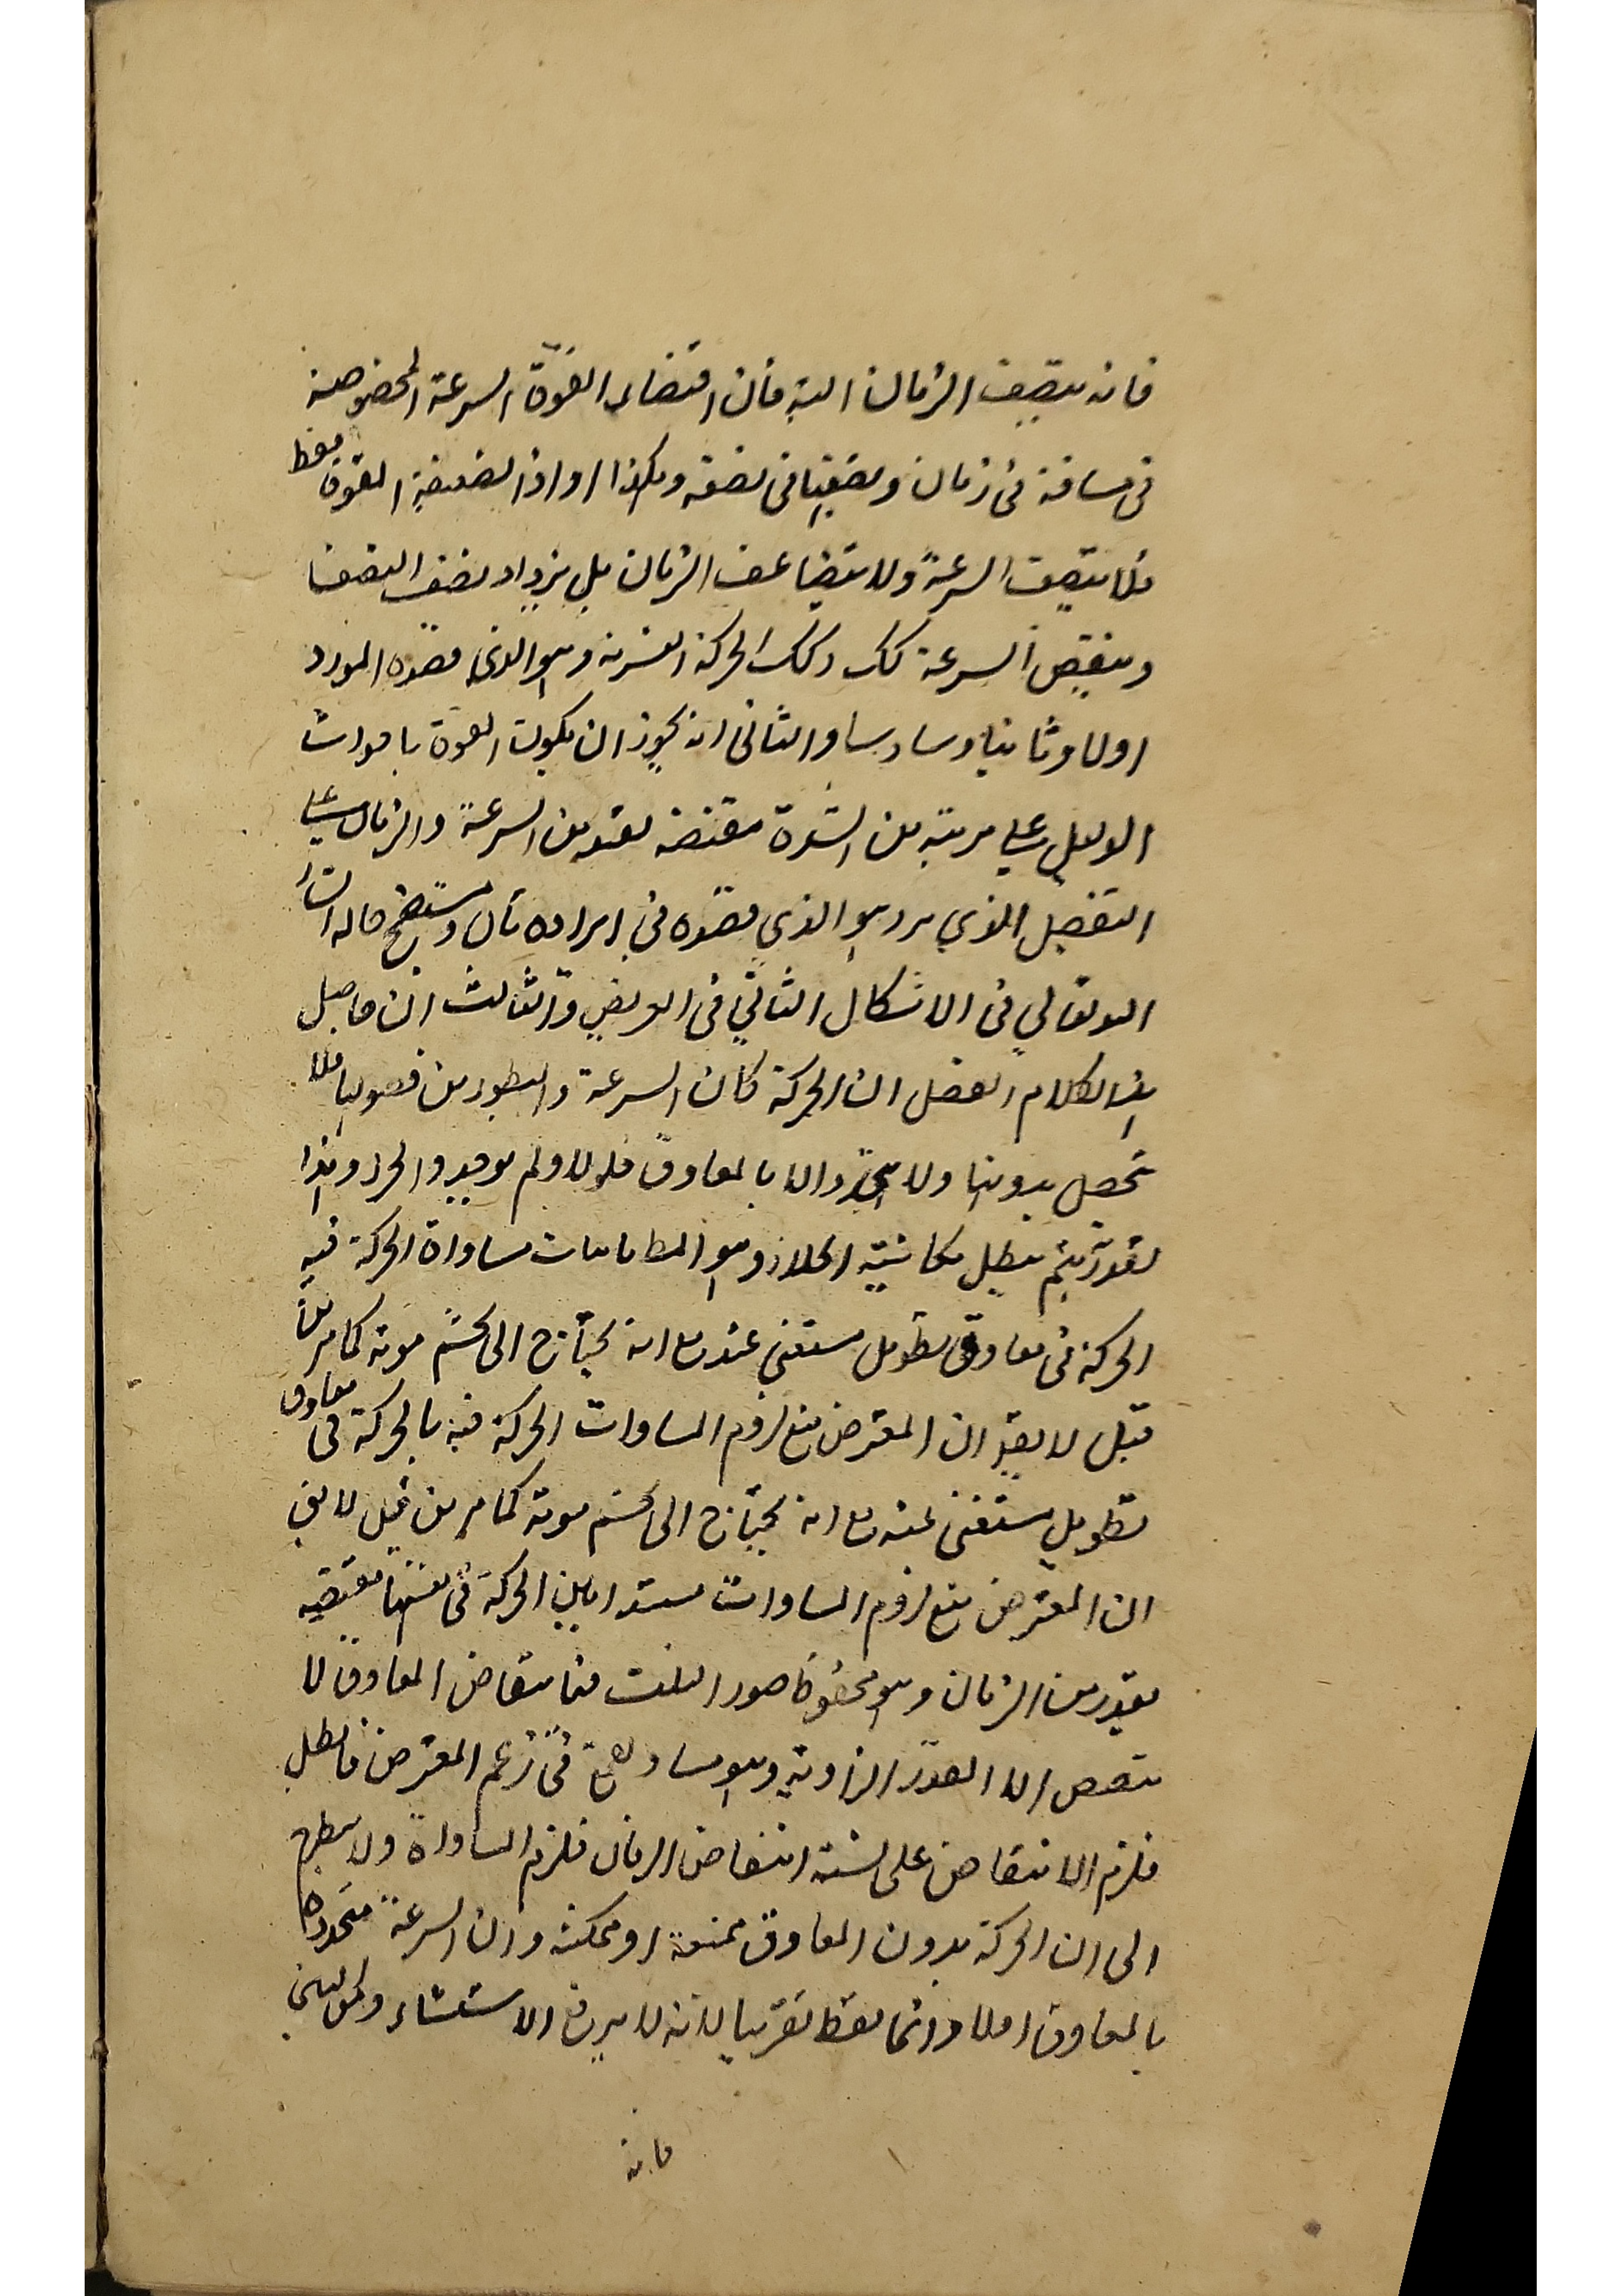 فانه يتصيف الزمان البته فان اقتضاء القوة السرعة المخصوصة
فى مسافة فى زمان ونصفها فى نصفه وهكذا واذا لضعيفة القوة فقط
فلا يتصف السرعة ولا يتضاعف الزمان بل يزداد نصف النصف
وينقص السرعة كك وكك الحركة القسرية وهو الذى قصده المورد
اولا وثانيا وسادسا والثانى انه يجوز ان يكون القوة باموات
الدليل على مرتبة من الشدة مقتضة لقدر من السرعة والزمان على
التفصيل الذي مر وهو الذي قصده فى ايراده ثان وستضح حاله انشا
الله تعالى فى الاشكال الثاني فى العريض والثالث ان حاصل
هذا الكلام الفصل ان الحركة كان السرعة والبطوء من فصولها فلا
تحصل بدونها ولا يتحدد الا بالمعاوق فلولا ولم يوجد والحد وهذا
لقدر يتم يبطل مكانية الخلاء وهو المط مابات مساواة الحركة فيه
الحركة فى معاوق تطويل مستغنى عنه مع انه يحتاج الى تجشم مونة كما مر من
قبل لا يقه ان المعترض منع لزوم المساوات الحركة فيه بالحركة فى معاوق
تطويل مستغنى عنه مع انه يحتاج الى تجشم مونة كما مر من قبل لا يق
ان المعترض منع لزوم المساوات مستدا بان الحركة فى نفسها مقتضيه
بقدر من الزمان وهو محفوظ صور الثلث فبانتقاص المعاوق لا
ينقص الا القدر الزاوية وهو مساو فى زعم المعترض فابطل
فلزم الانتقاص على نسبة انتقاص الزمان فلزم المساواة ولا ينظر
الى ان الحركة بدون المعاوق ممتنعة او ممكنة وان السرعة متحددة
بالمعاوق املا وانما فقط تقريبا لانه لا يرفع الاستثناء ولكن ليس
فانه